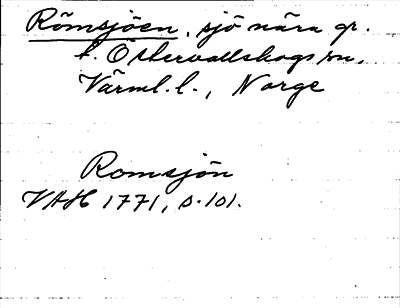 Römsjöen, sjö nära gr.
t. Östervallskogs sn,
Värml. l., Norge
Romsjön
VAH 1771, s. 101.